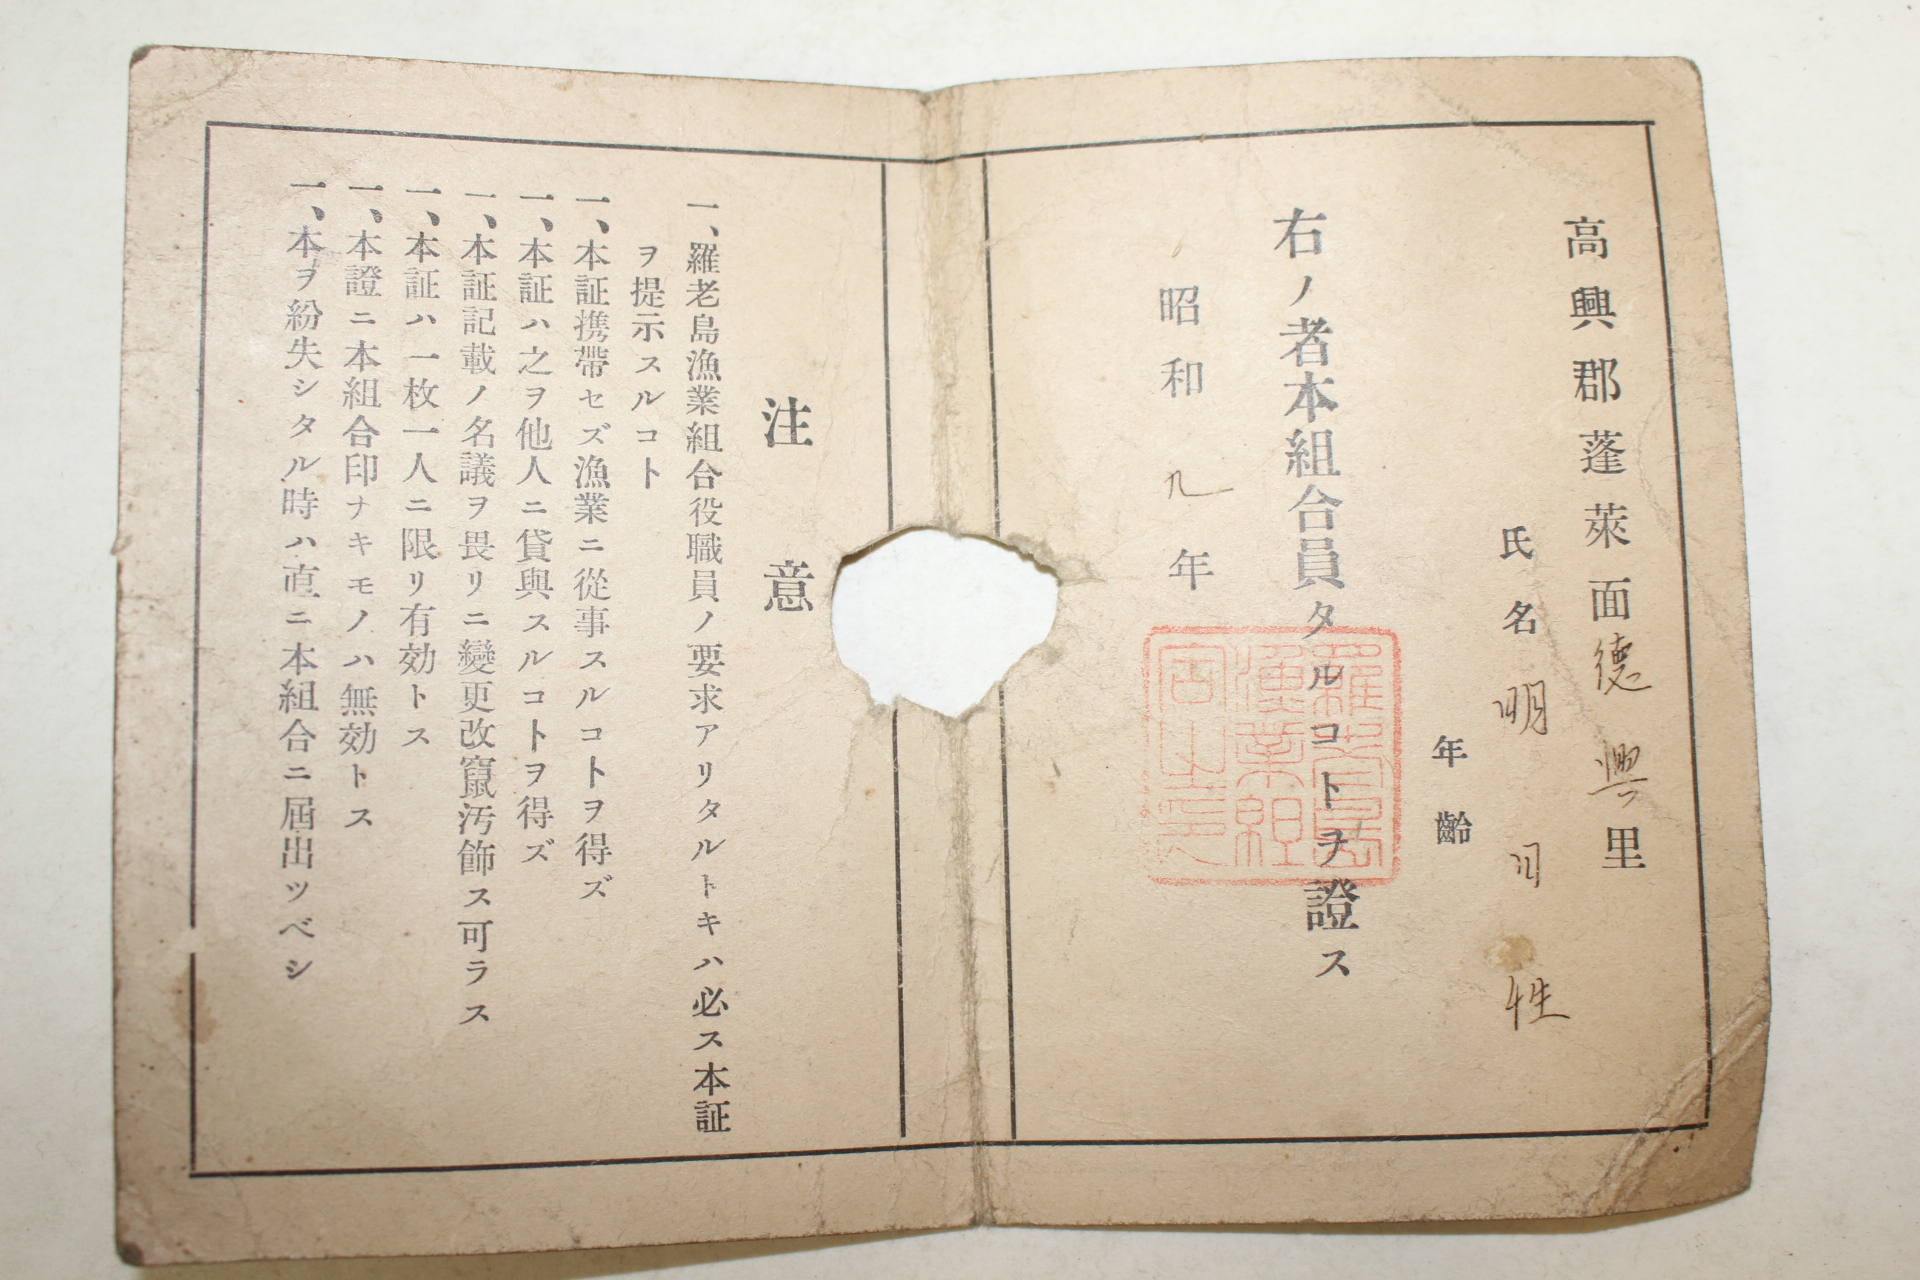 高興郡蓬萊面德興里
氏名 明 性
年齡
右ノ者本組合員タルコトヲ證ス
昭和九年
羅老島
漁業組
注意
一、羅老島漁業組合役職員ノ要求アリタルトキハ必ス本証
ヲ提示スルコト
一、本証携帶セズ漁業ニ從事スルコトヲ得ズ
一、本証ハ之ヲ他人ニ貸與スルコトヲ得ズ
一、本証記載ノ名議ヲ畏リニ變更改竄汚飾ス可ラス
一、本証ハ一枚一人ニ限リ有効トス
一、本證ニ本組合印ナキモノハ無効トス
一、本ヲ紛失シタル時ハ直ニ本組合ニ屆出ツベシ